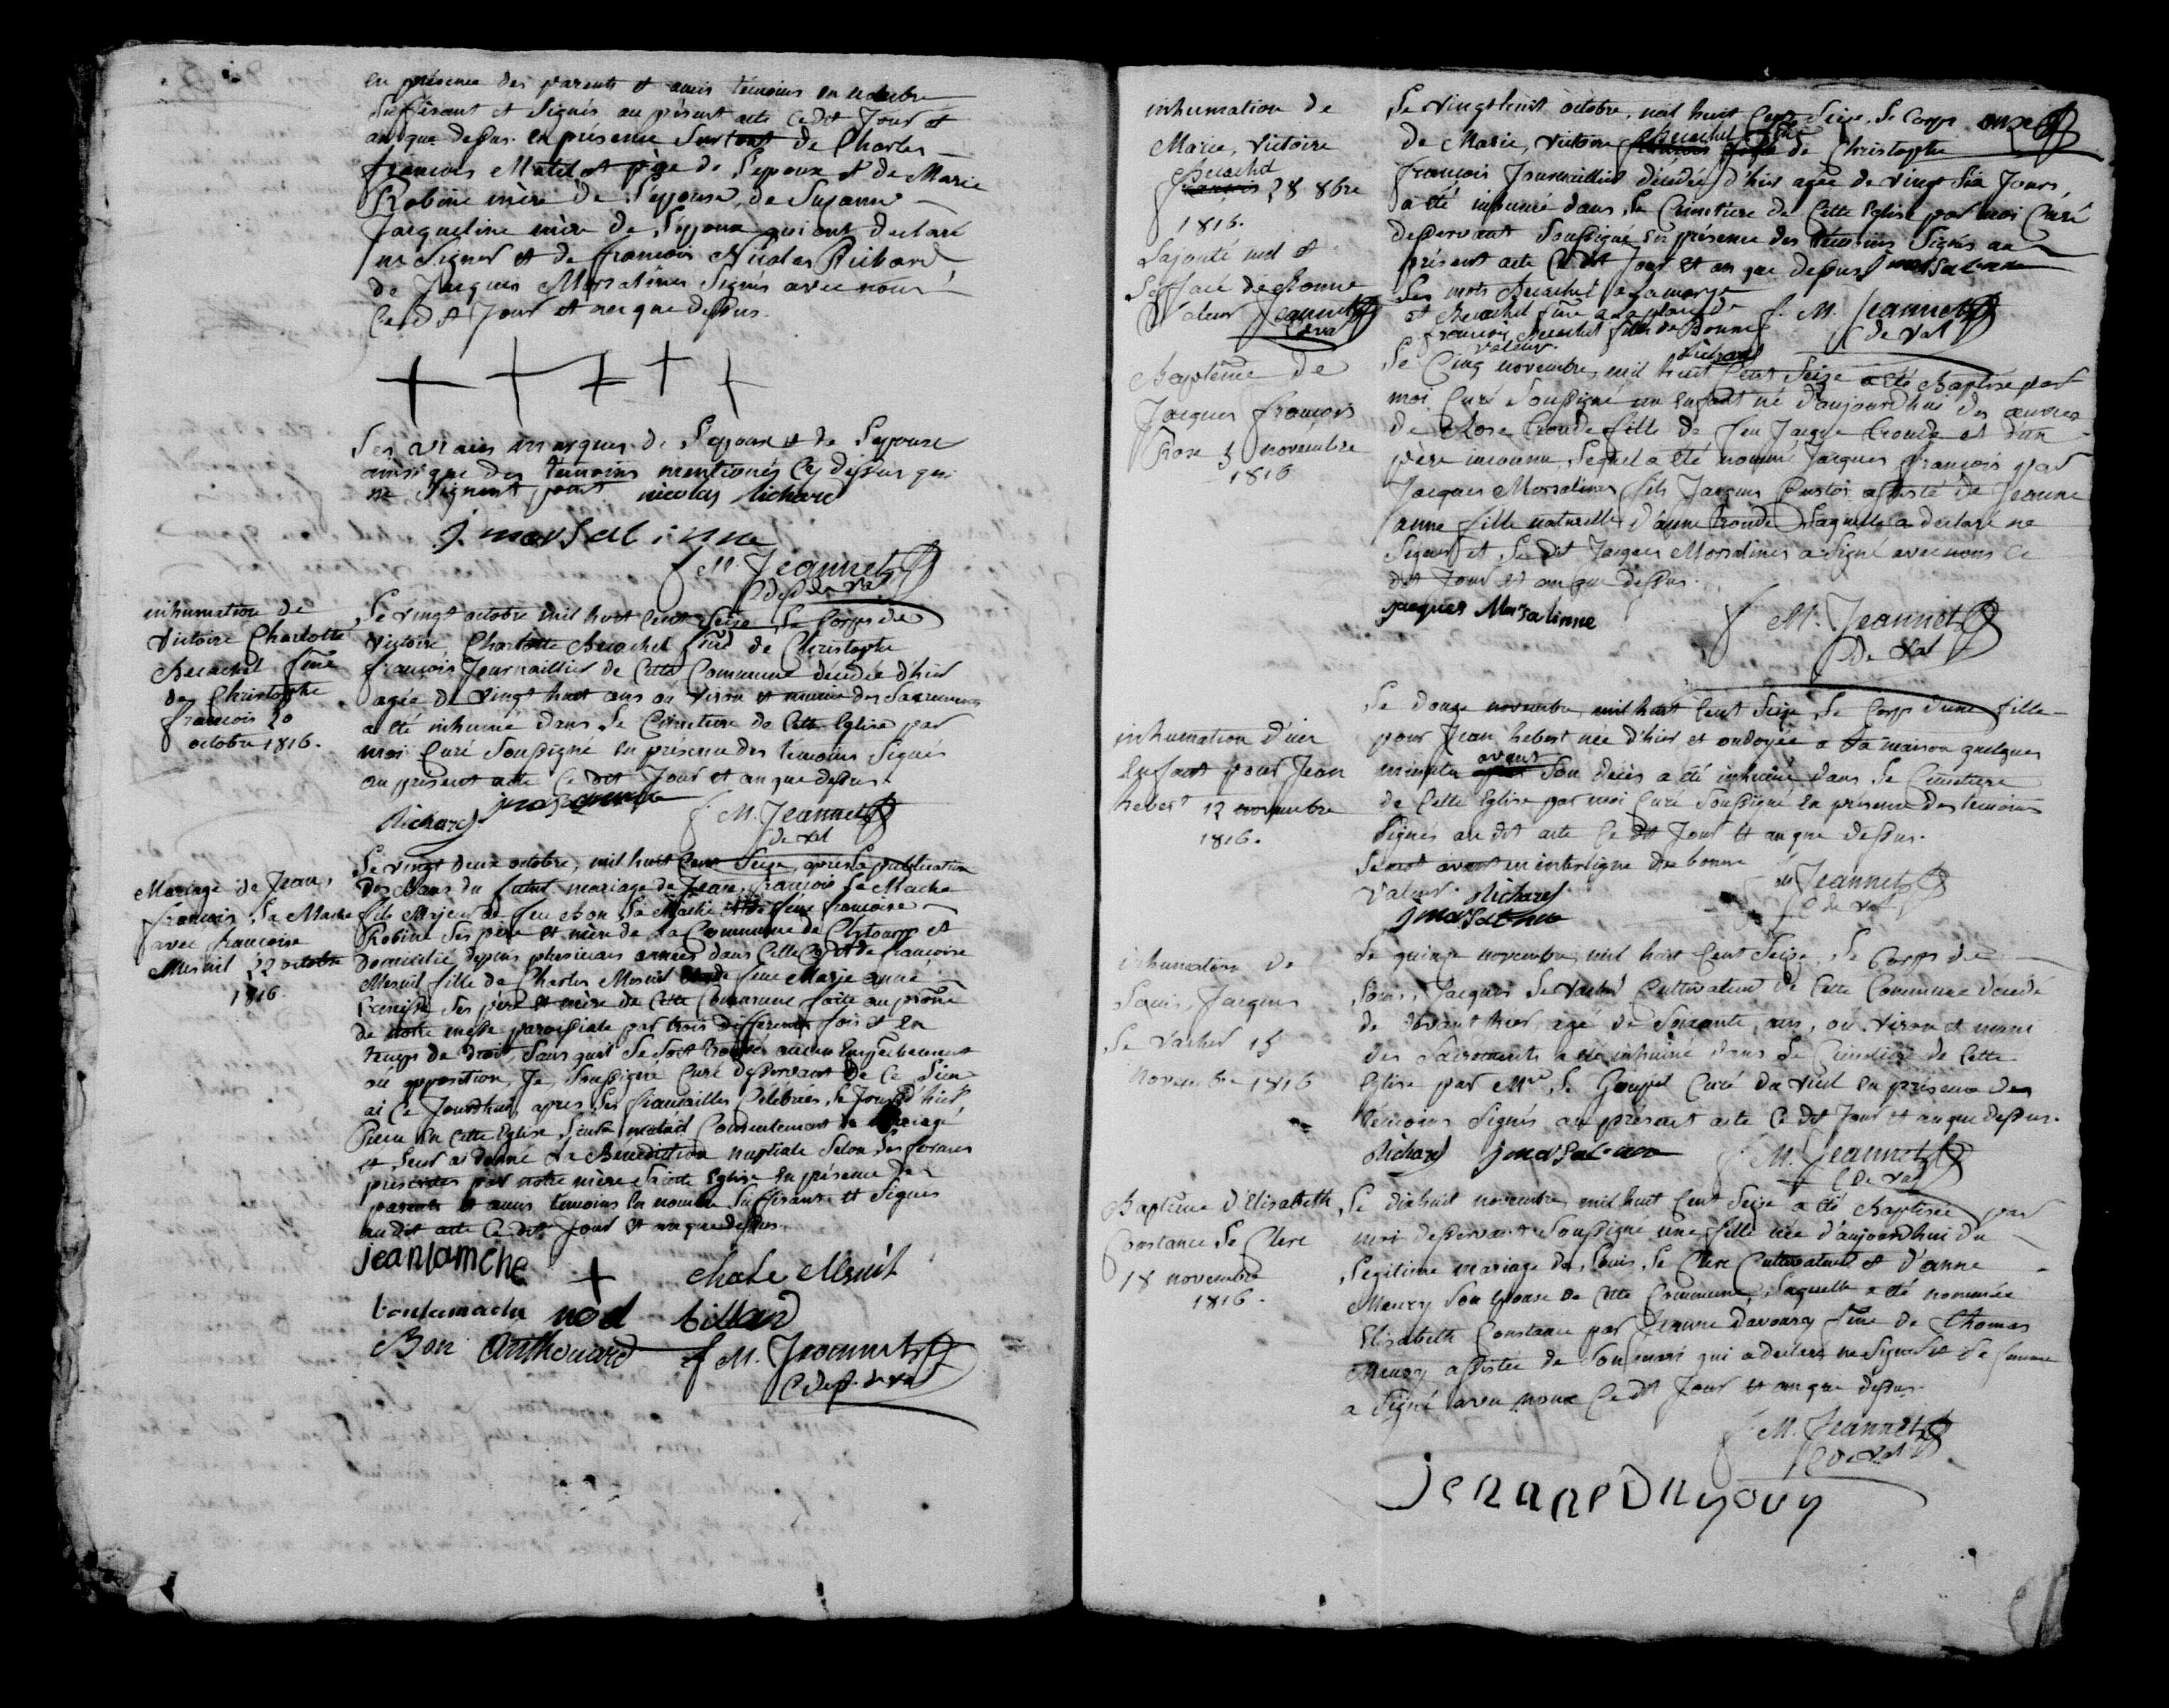 en présence des parents et amis témoins en nombre
suffisant et signés au présent acte ce dit jour et
an que dessus en présence surtout de Charles
françois Mutel et père de l'epoux et de Marie
Robine mère de l'épouse, de Suzanne
Jacqueline mère de l'epoux qui ont declaré
ne signer et de françois Nicolas Richard,
de Jacques Marsalines signés avec nous
ce dit jour et an que dessus.
les vraies marques de l'epoux et de l'epouse
ainsi que des témoins mentionés cy dessus qui
ne signent point nicolas Richard
j. marsalinne
f. M. Jeannet
C. desst. du Val
inhumation de
Victoire Charlotte
Becachel fme
de Christophe
françois 20
octobre 1816.
Le vingt octobre mil huit cent seize, le corps de
victoire Charlotte Becachel fme de Christophe
françois Journaillier de cette Commune décédée d'hier
agée de vingt huit ans ou viron et munie des sacremens
a été inhumé dans le Cimetiere de cette Eglise par
moi Curé soussigné en présence des témoins signés
au présent acte ce dit jour et an que dessus.
Richard
f. M. Jeannet
C de Val
Mariage de Jean,
françois, La Mache
avec françoise
Mesnil 22 octobre
1816.
Le vingt deux octobre, mil huit cent seize, après la publication
des Bans du futur mariage de Jean, françois Le Mache
fils Majeur de feu Bon La Mache et de feue françoise
Robine ses père et mère de la Commune de
domicilié depuis plusieurs années dans Celle Cy et de françoise
Mesnil fille de Charles Mesnil et de feue Marie anne
ses père et mère de cette Commune faite au prône
de notre messe paroissiale par trois differentes fois et en
temps de droit, sans qu'il se soit trouvé aucun empechement
ou opposition, Je soussigné Curé desservant de ce lieu
ai ce Jourd'hui, après les fiancailles Célébrées le Jour d'hier
en cette Eglise, leur mutuel Consentement de mariage
et leur ai donné la Bénédiction nuptiale selon les formes
présentes par notre mère Sainte Eglise en présence des
parents et amis témoins en nombre suffisant et signés
au dit acte ce dit jour et an que dessus.
jean lamche chale Mesnil
bon lamache nod
Bon Anthouard f. M. Jeannet
C desst. du val
inhumation de
Marie, Victoire
Becachel
françois 28 8bre
1816.
L'ajouté nul et
l'effacé de Bonne
Valeur Jeannet
C de Val
Le vingt huit octobre, mil huit cent seize, le corps
de Marie, Victoire Becachel de Christophe
françois Journaillier décédée d'hier agée de vingt six Jours,
a été inhumée dans le Cimetiere de Cette Eglise par moi Curé
desservant soussigné en présence des témoins signés au
présent acte ce dit Jour et an que dessus
Les mots Becachel a la marge
et Becachel fme a la place de
françois Becachel fille de Bonne
valeur. Richard
f. M. Jeannet
C de Val
Baptême de
Jacques françois
Rose 5 novembre
1816
Le Cinq novembre, mil huit Cent seize a été Baptisé par
moi Curé soussigné un enfant né d'aujourd'hui des œuvres
de Rose Croude fille de feu Jacque Croude et d'un
père inconnu, lequel a été nommé Jacques françois par
Jacques Marsalines fils Jacques Custos assisté de Jeanne
anne fille naturelle d'anne Croude laquelle a declaré ne
signer et le dit Jacques Marsalines a signé avec nous ce
dit Jour et an que dessus.
jacques Marsalinne f. M. Jeannet
C de Val
inhumation d'un
Enfant pour Jean
hebert 12 novembre
1816.
Le douze novembre, mil huit Cent Seize, le Corps d'une fille
pour Jean hebert née d'hier et ondoyée a la maison quelques
minutes avant son décès a été inhumé dans le Cimetiere
de Cette Eglise par moi Curé soussigné en présence des témoins
signés au dit acte ce dit Jour et an que dessus.
le mot avant en interligne de bonne
Valeur. Richard
f. M. Jeannet
C de Val
inhumation de
Louis, Jacques
Le Vacher 15
Novembre 1816
Le quinze novembre, mil huit Cent Seize, le Corps de
Louis, Jacques Le Vacher Cultivateur de Cette Commune décédé
de devant hier, agé de soixante, ans, ou viron et muni
des Sacrements a été inhumé dans le Cimetiere de Cette
Eglise par Mr. Le Goupil Curé du Vicel en présence des
témoins signés au présent acte ce dit Jour et an que dessus.
Richard f. M. Jeannet
C de Val
Baptême d'Elisabeth
Constance Le Clerc
18 novembre
1816.
Le dixhuit novembre, mil huit Cent Seize a été Baptisée par
moi desservant soussigné une fille née d'aujourd'hui du
légitime mariage de Louis Le Clerc Cultivateur et d'anne
Meury son épouse de Cette Commune, laquelle a été nommée
Elisabeth Constance par Jeanne Davoury fme de Thomas
Meury assistée de son mari qui a declaré ne signer et sa femme
a signé avec nous ce dit Jour et an que dessus.
f. M. Jeannet
C de Val